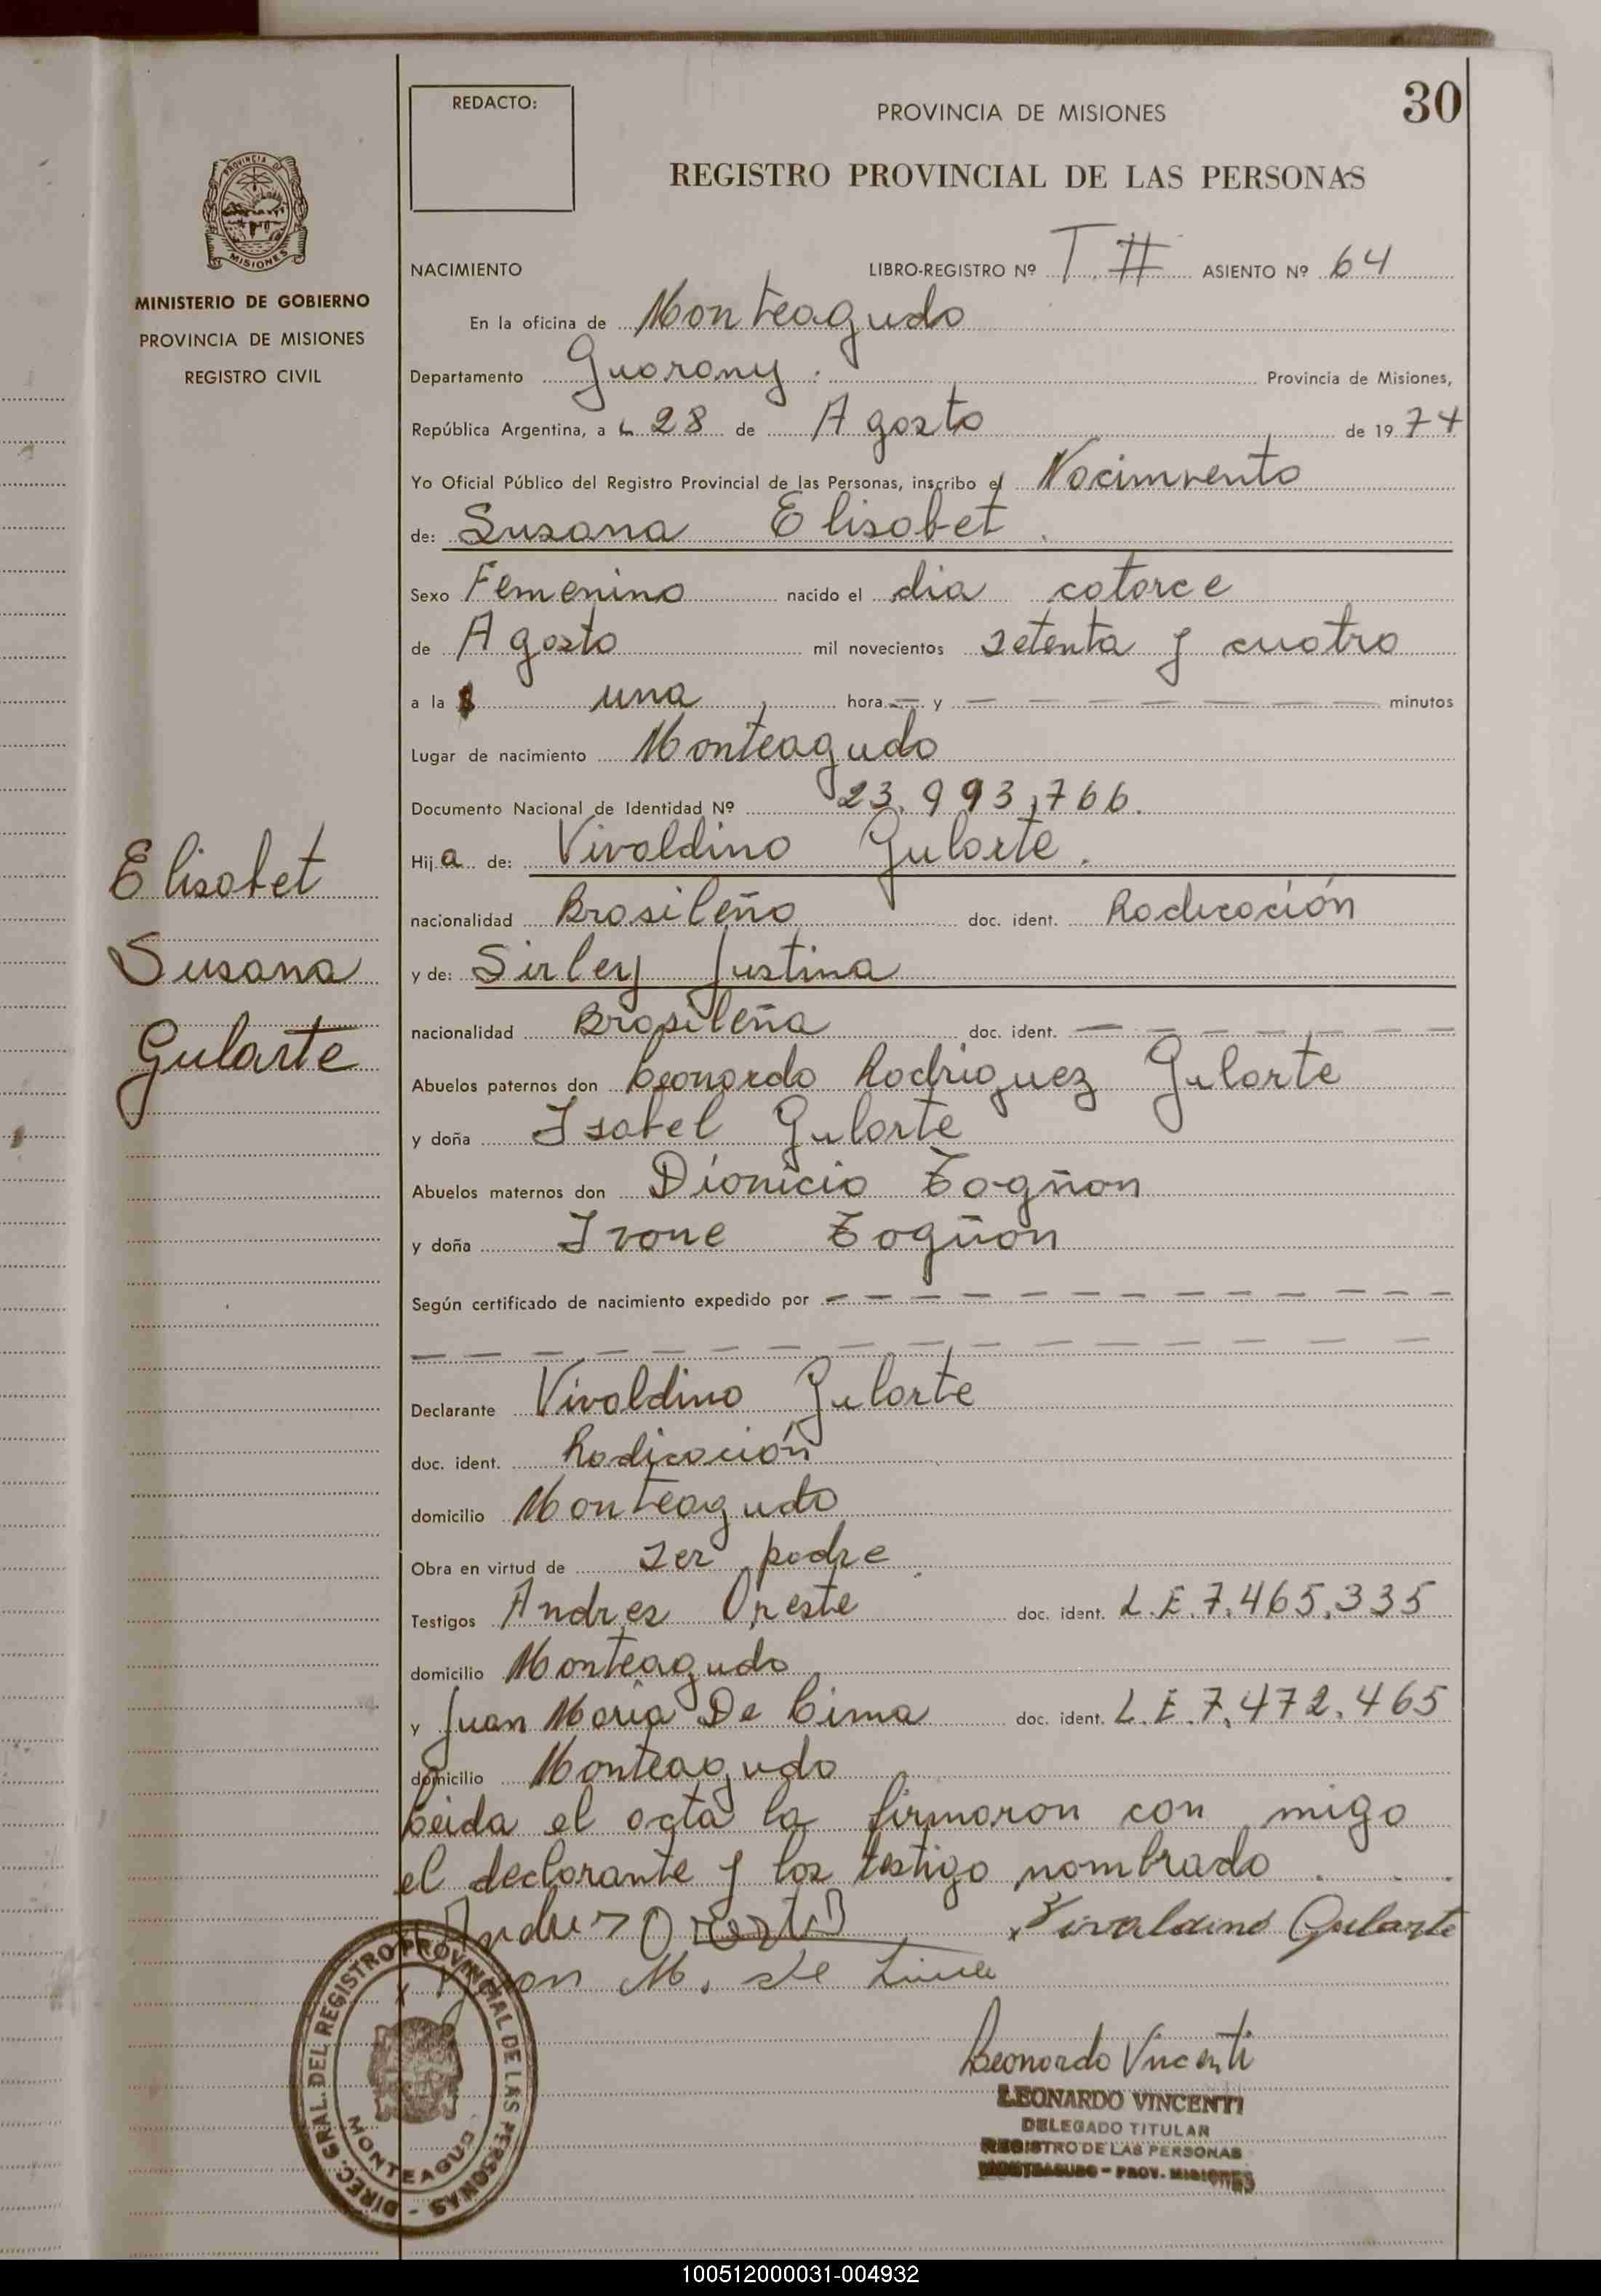 30
REDACTO:
PROVINCIA DE MISIONES
REGISTRO PROVINCIAL DE LAS PERSONAS
PROVINCIA DE
MISIONES
MINISTERIO DE GOBIERNO
PROVINCIA DE MISIONES
REGISTRO CIVIL
NACIMIENTO LIBRO-REGISTRO Nº T. II ASIENTO Nº 64
En la oficina de Monteagudo
Departamento Guarany. Provincia de Misiones,
República Argentina, a L 28 de Agosto de 1974
Yo Oficial Público del Registro Provincial de las Personas, inscribo el Nacimiento
de: Susana Elisabet.
Sexo Femenino nacido el dia catorce
de Agosto mil novecientos setenta y cuatro
a la una hora — y — — — — — — — minutos
Lugar de nacimiento Monteagudo
Documento Nacional de Identidad Nº 23.993,766.
Hija de: Vivaldino Gularte.
nacionalidad Brasileño doc. ident. Radicación
y de: Sirley Justina
nacionalidad Brasileña doc. ident. — — — — — — —
Abuelos paternos don Leonardo Rodriguez Gularte
y doña Isabel Gularte
Abuelos maternos don Dionicio Togñon
y doña Ivone Togñon
Según certificado de nacimiento expedido por — — — — — — — — — — — —
— — — — — — — — — — — — — — — — — —
Declarante Vivaldino Gularte
doc. ident. Radicación
domicilio Monteagudo
Obra en virtud de ser padre.
Testigos Andres Oreste doc. ident. L.E.7.465.335
domicilio Monteagudo
y Juan Maria De Lima doc. ident. L.E.7.472.465
domicilio Monteagudo
Leida el acta la firmaron con migo
el declarante y los testigo nombrado
Elisabet
Susana
Gularte
Vivaldino Gularte
Juan M. de Lima
Leonardo Vincenti
LEONARDO VINCENTI
DELEGADO TITULAR
REGISTRO DE LAS PERSONAS
MONTEAGUDO - PROV. MISIONES
DIREC. GRAL. DEL REGISTRO PROVINCIAL DE LAS PERSONAS -
MONTEAGUDO
100512000031-004932